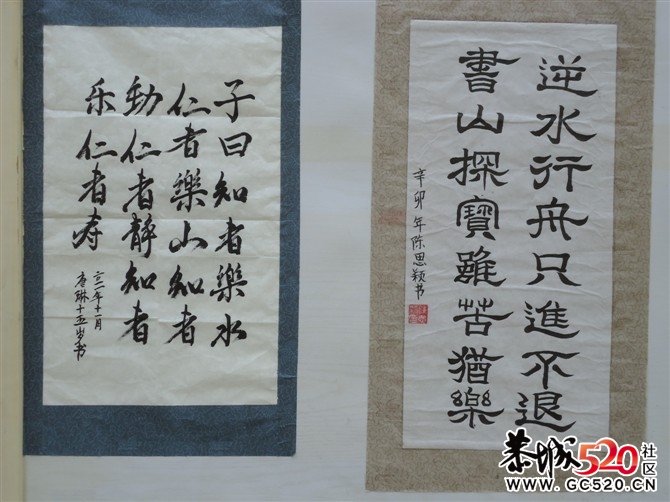 子曰知者樂水
仁者樂山知者
動仁者靜知者
乐仁者寿
年十一月
唐琳十五岁书
逆水行舟只進不退
書山探寶雖苦猶樂
辛卯年陈思颖书
恭城520社区
WWW.GC520.CN